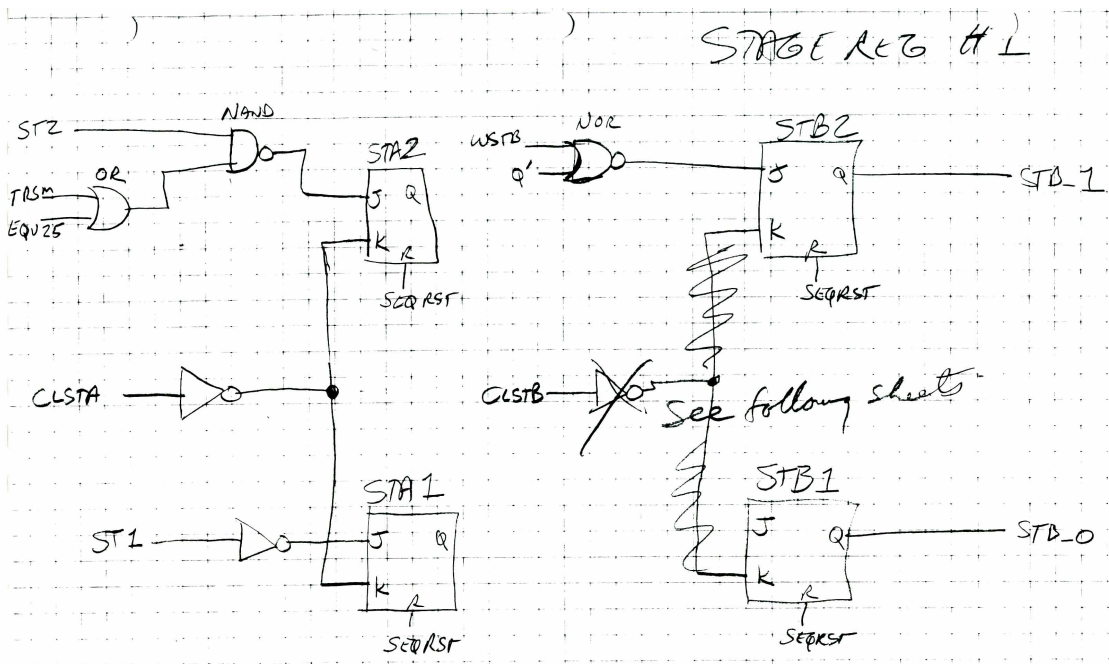 STAGE REG # 1
NAND
ST2
OR
TRSM
EQU25
STA2
J Q
K
R
SEQRST
CLSTA
STA1
ST1
J Q
K
R
SEQRST
NOR
WSTB
Q'
STB2
J Q
K
R
SEQRST
STB_1
CLSTB
See following sheets
STB1
J
Q
K
R
SEQRST
STB_0